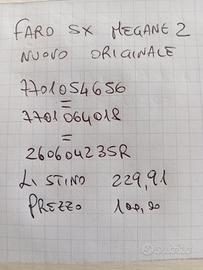 FARO SX MEGANE 2
NUOVO ORIGINALE
7701054656
=
7701064018
=
260604235R
LISTINO 229,91
PREZZO 100,00
subito